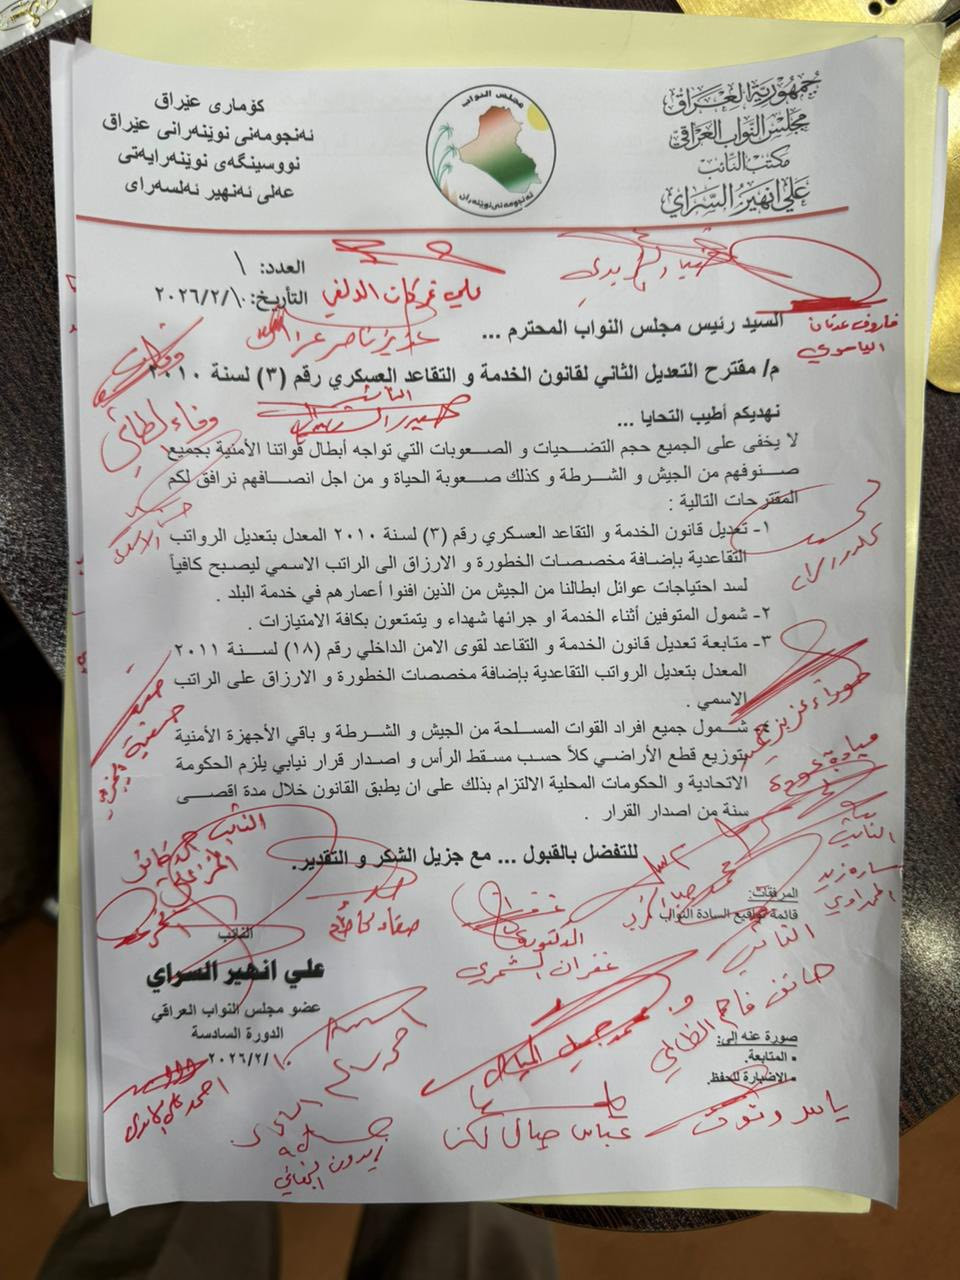 جمهورية العراق
مجلس النواب العراقي
مكتب النائب
علي انهير السراي
مجلس النواب
ئەنجومەنی نوێنەران
كۆماری عێراق
ئەنجومەنی نوێنەرانی عێراق
نووسینگەی نوێنەرایەتی
عەلی ئەنهیر ئەلسەرای
العدد: ١
التأريخ: ٢٠٢٦/٢/١٠
علي تركات الدلفي
فاروق عدنان
الياسري
السيد رئيس مجلس النواب المحترم ...
عزيز ناصر
م/ مقترح التعديل الثاني لقانون الخدمة و التقاعد العسكري رقم (٣) لسنة ٢٠١٠
النائب
نهديكم أطيب التحايا ...
وفاء الطائي
لا يخفى على الجميع حجم التضحيات و الصعوبات التي تواجه أبطال قواتنا الأمنية بجميع
صنوفهم من الجيش و الشرطة و كذلك صعوبة الحياة و من اجل انصافهم نرافق لكم
المقترحات التالية :
١- تعديل قانون الخدمة و التقاعد العسكري رقم (٣) لسنة ٢٠١٠ المعدل بتعديل الرواتب
التقاعدية بإضافة مخصصات الخطورة و الارزاق الى الراتب الاسمي ليصبح كافياً
لسد احتياجات عوائل ابطالنا من الجيش من الذين افنوا أعمارهم في خدمة البلد .
٢- شمول المتوفين أثناء الخدمة او جرائها شهداء و يتمتعون بكافة الامتيازات .
٣- متابعة تعديل قانون الخدمة و التقاعد لقوى الامن الداخلي رقم (١٨) لسنة ٢٠١١
المعدل بتعديل الرواتب التقاعدية بإضافة مخصصات الخطورة و الارزاق على الراتب
الاسمي .
شمول جميع افراد القوات المسلحة من الجيش و الشرطة و باقي الأجهزة الأمنية
بتوزيع قطع الأراضي كلاً حسب مسقط الرأس و اصدار قرار نيابي يلزم الحكومة
الاتحادية و الحكومات المحلية الالتزام بذلك على ان يطبق القانون خلال مدة اقصى
سنة من اصدار القرار .
النائب
النائب
للتفضل بالقبول ... مع جزيل الشكر و التقدير.
ساره زيد
المرفقات:
قائمة تواقيع السادة النواب
الدكتورة
غفران الشمري
النائب
النائب
علي انهير السراي
عضو مجلس النواب العراقي
الدورة السادسة
٢٠٢٦/٢/١٠
صورة عنه إلى:
• المتابعة.
• الاضبارة للحفظ.
ياسر وتوت